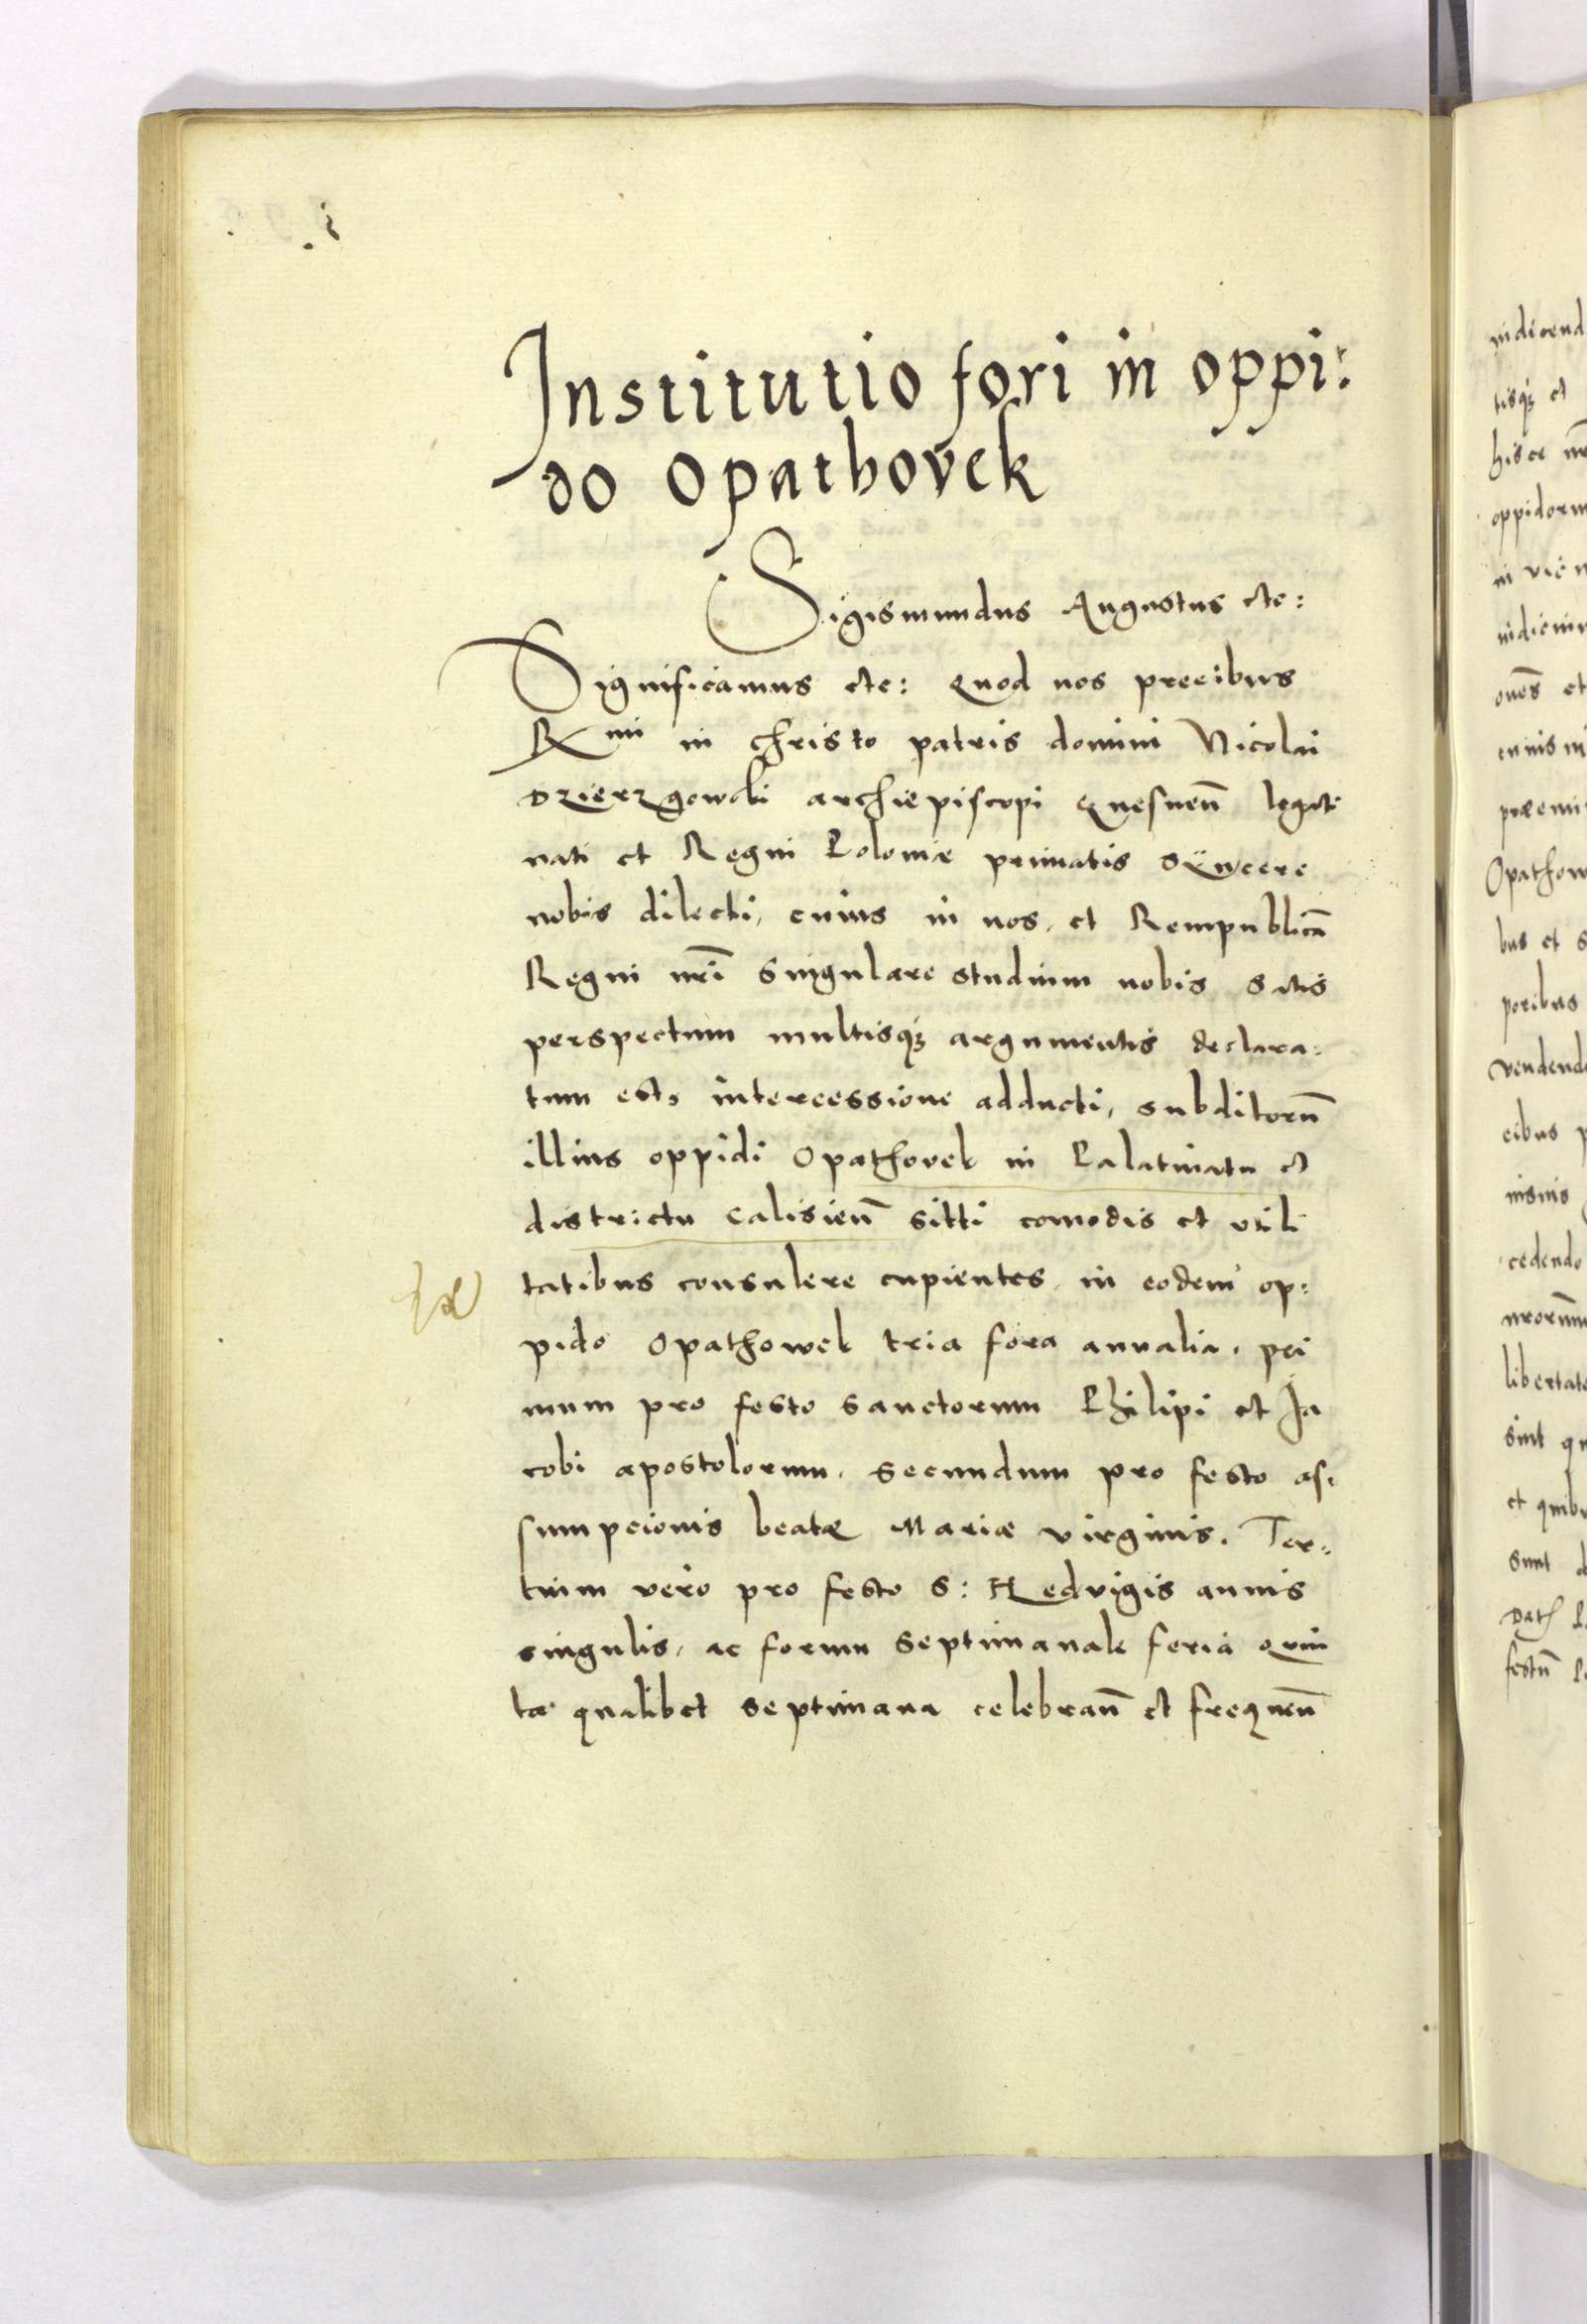 Institutio fori in oppi:
do Opathovek
Sigismundus Augustus etc:
Significamus etc: Quod nos precibus
Rmi in christo patris domini Nicolai
Dzierzgowski archiepiscopi Gnesnen̄ legati
nati et Regni Poloniæ primatis syncere
nobis dilecti, cuius in nos, et Rempublicā
Regni nr̄i singulare studium nobis satis
perspectum multisqꝫ argumentis declara:
tum est, intercessione adducti, subditorū
illius oppidi Opathovek in Palatinatu et
districtu Calisien̄ sitti comodis et utili
tatibus consulere cupientes, in eodem op:
pido Opathowek tria fora annalia, pri
mum pro festo sanctorum Philipi et Ja
cobi apostolorum, secundum pro festo as:
sumpcionis beatæ Mariæ virginis. Ter:
tium vero pro festo S: Hedvigis annis
singulis, ac forum septimanale feria quin
ta qualibet septimana celebran̄ et frequen̄
indicend
tisqꝫ et
hisce
oppidorum
in vic
ones et
præmi
Opathow
bus et s
poribus
vendend
cibus p
cedendo
libertat
sint qu
et quibu
sunt d
Dat P
festū